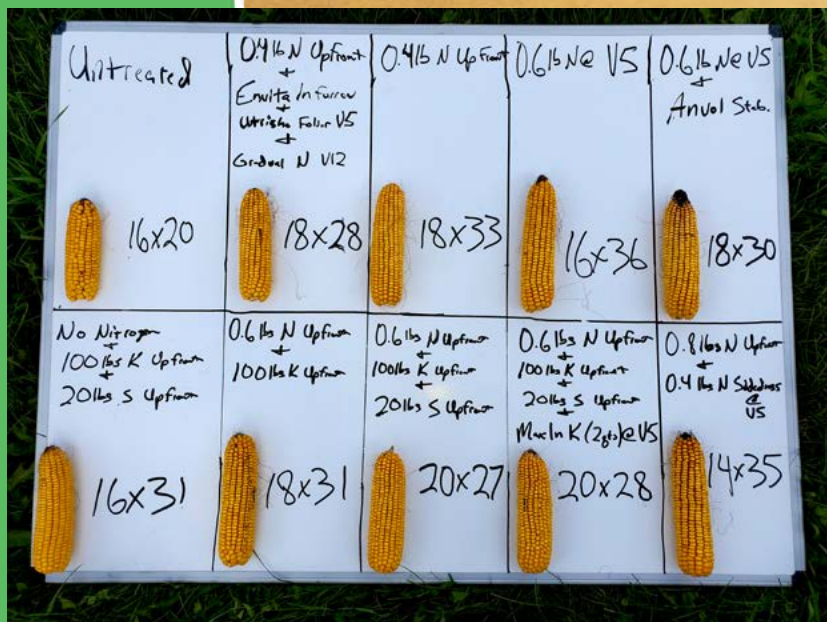 Untreated
16x20
0.4lb N Upfront
+
Envita In furrow
+
Utrisha Foliar V5
+
Gradual N V12
18x28
0.4lb N Upfront
18x33
0.6lb N@ V5
16x36
0.6lb N@ V5
+
Anvol Stab.
18x30
No Nitrogen
+
100lbs K Upfront
+
20lbs S Upfront
16x31
0.6lbs N Upfront
+
100lbs K Upfront
18x31
0.6lbs N Upfront
+
100lbs K Upfront
+
20lbs S Upfront
20x27
0.6lbs N Upfront
+
100lbs K Upfront
+
20lbs S Upfront
+
Max In K (2qts)@ V5
20x28
0.8lbs N Upfront
+
0.4lbs N Sidedress
@
V5
14x35